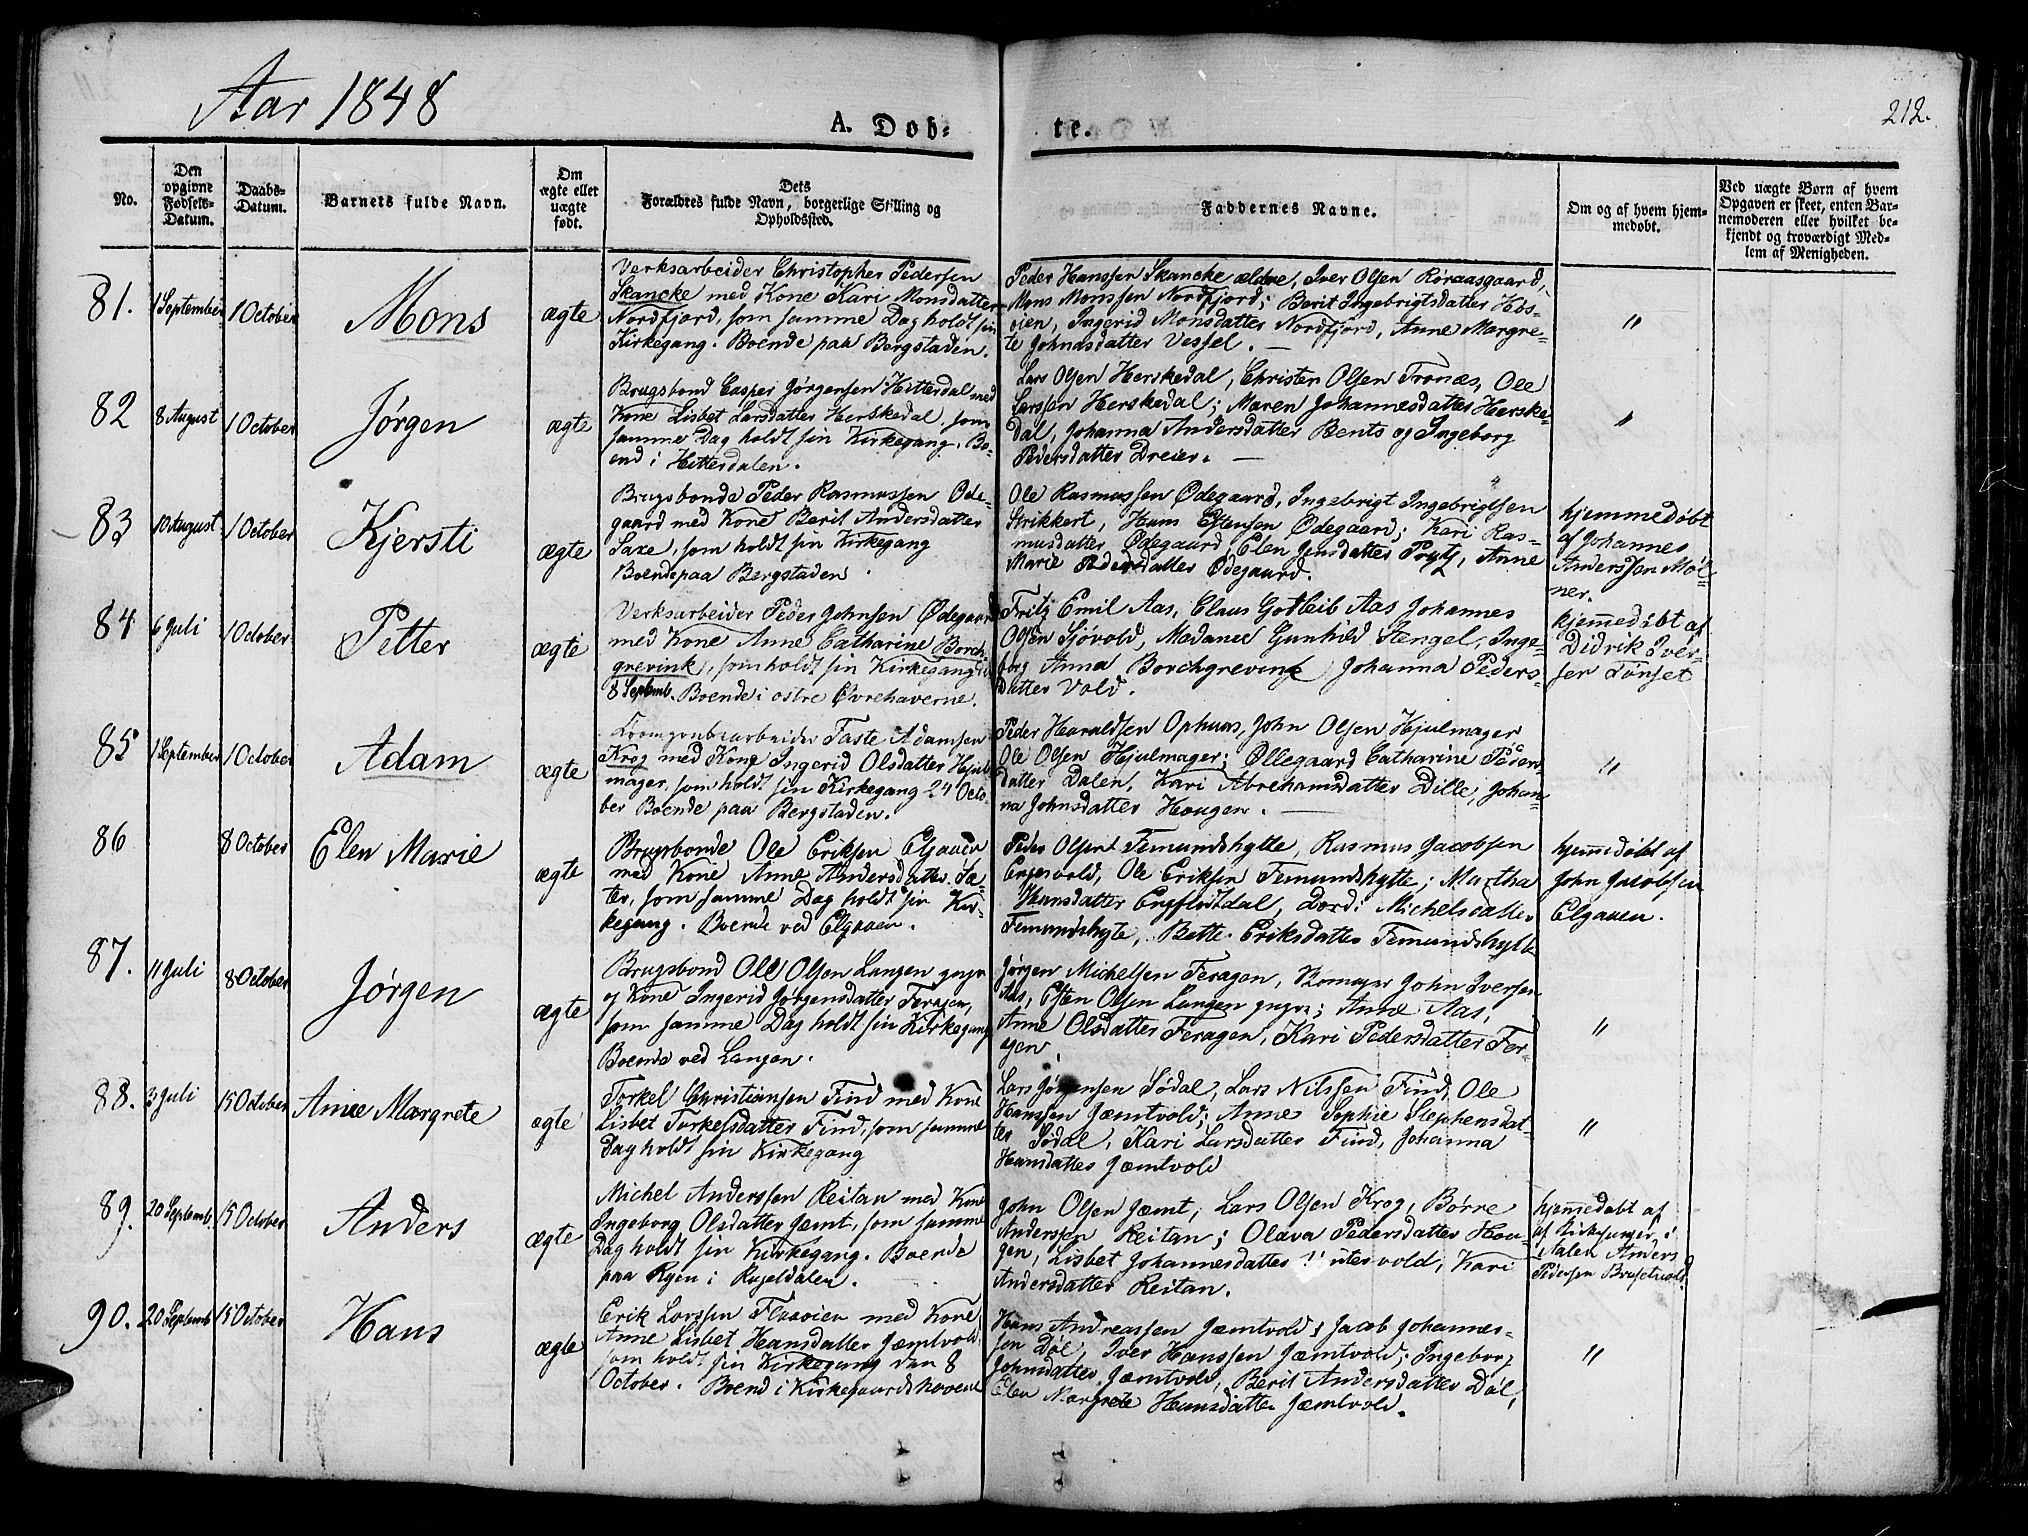 Aar 1848
A. Dob-
te.
212.
No.
Den
opgivne
Fødsels-
Datum.
Daabs-
Datum.
Barnets fulde Navn.
Om
ægte eller
uægte
født.
Dets
Forældres fulde Navn, borgerlige Stilling og
Opholdssted.
Faddernes Navne.
Om og af hvem hjem-
medøbt.
Ved uægte Born af hvem
Opgaven er skeet, enten Bar-
nemoderen eller hvilket be-
kjendt og troværdigt Med-
lem af Menigheden.
81.
1 September
1 October
Mons
ægte
Verksarbeider Christopher Pedersen
Skancke med Kone Kari Monsdatter
Nordfjord, som samme Dag holdt sin
Kirkegang. Boende paa Bergstaden.
Peder Hanssen Skancke ældre, Iver Olsen Røraasgaard,
Mons Monssen Nordfjord; Berit Ingebrigtsdatter Hos-
øien, Ingerid Monsdatter Nordfjord, Anne Margre-
te Johnsdatter Vessel.
"
82
8 August
1 October
Jørgen
ægte
Brugsbond Casper Jørgensen Hitterdal med
Kone Lisbet Larsdatter Herskedal som
samme Dag holdt sin Kirkegang. Bo-
end i Hitterdalen.
Lars Olsen Herskedal, Christen Olsen Tronæs, Ole
Larssen Herskedal; Maren Johannesdatter Herske-
dal, Johanna Andersdatter Bents og Ingeborg
Pedersdatter Dreier.
"
83
10 August
1 October
Kjersti
ægte
Brugsbonde Peder Rasmussen Øde-
gaard med Kone Berit Andersdatter
Saxe, som holdt sin Kirkegang
Boende paa Bergstaden.
Ole Rasmussen Ødegaard, Ingebrigt Ingebrigtsen
Strikkert, Hans Estensen Ødegaard; Kari Ras-
musdatter Ødegaard, Elen Jensdatter Prytz, Anne
Marie Pedersdatter Ødegaard.
hjemmedøbt
af Johannes
Anderssen Møl-
ner.
84
6 Juli
1 October
Petter
ægte
Verksarbeider Peder Johnsen Ødegaard
med Kone Anne Catharine Borch-
grevink, som holdt sin Kirkegang
8 Septemb. Boende i ostre Øvrehaverne.
Fritz Emil Aas, Claus Gotleib Aas Johannes
Olsen Sjøvold, Madame Gunhild Stengel, Inge-
borg Anna Borchgrevink Johanna Peders-
datter Vold.
hjemmedøbt af
Didrik Iver-
sen Tønset
85
1 September
1 October
Adam
ægte
Taste Adamsen
Krog med Kone Ingerid Olsdatter Hjul-
mager, som holdt sin Kirkegang 24 Octo-
ber Boende paa Bergstaden.
Peder Haraldsen Ophuus, John Olsen Hjulmager
Ole Olsen Hjulmager; Øllegaard Catharine Peders-
datter Dalen, Kari Abrahamsdatter Dille, Johan-
na Johnsdatter Haugen.
"
86
8 October
Elen Marie
ægte
Brugsbonde Ole Eriksen Elgaaen
med Kone Anne Andersdatter Sæ-
ter, som samme Dag holdt sin Kir-
kegang. Boende ved Elgaaen.
Peder Olsen Femundshytte, Rasmus Jacobsen
Engesvold, Ole Eriksen Femundshytte; Martha
Hansdatter Engflotdal, Dordi Michelsdatter
Femundshyte, Bette Eriksdatter Femundshytte
hjemmedøbt af
John Jacobsen
Elgaaen.
87.
11 Juli
8 October
Jørgen
ægte
Brugsbond Ole Olsen Langen
og Kone Ingerid Jørgensdatter Feragen,
som samme Dag holdt sin Kirkegang
Boende ved Langen.
Jørgen Michelsen Feragen, John Iversen
Aas, Esten Olsen Langen; Anne Aas,
Anne Olsdatter Feragen, Kari Pedersdatter Fer-
agen
"
88.
3 Juli
15 October
Anne Margrete
ægte
Torkel Christiansen Find med Kone
Lisbet Torkelsdatter Find, som samme
Dag holdt sin Kirkegang
Lars Jørgensen Sødal, Lars Nilssen Find, Ole
Hanssen Jæmtvold; Anne Sophie Stephensdat-
ter Sødal, Kari Larsdatter Find, Johanna
Hansdatter Jæmtvold
"
89.
20 Septemb.
15 October
Anders
ægte
Michel Anderssen Reitan med Kone
Ingeborg Olsdatter Jæmt, som samme
Dag holdt sin Kirkegang. Boende
paa Ryen i Rugeldalen.
John Olsen Jæmt, Lars Olsen Krog, Børre
Anderssen Reitan; Olava Pedersdatter Hau-
gen, Lisbet Johannesdatter, Kari
Andersdatter Reitan.
hjemmedøbt af
af Kirkesanger i
Aalen Anders
Pedersen
90.
20 Septemb
15 October
Hans
ægte
Erik Larssen Flaaøien med Kone
Anne Lisbet Hansdatter Jæmtvold
som holdt sin Kirkegang den 8
October. Boend i
Hans Andreassen Jæmtvold; Jacob Johannes-
sen Døl, Iver Hanssen Jæmtvold; Ingeborg
Johnsdatter Jæmtvold, Berit Andersdatter Døl,
Elen Margrete Hansdatter Jæmtvold.
"